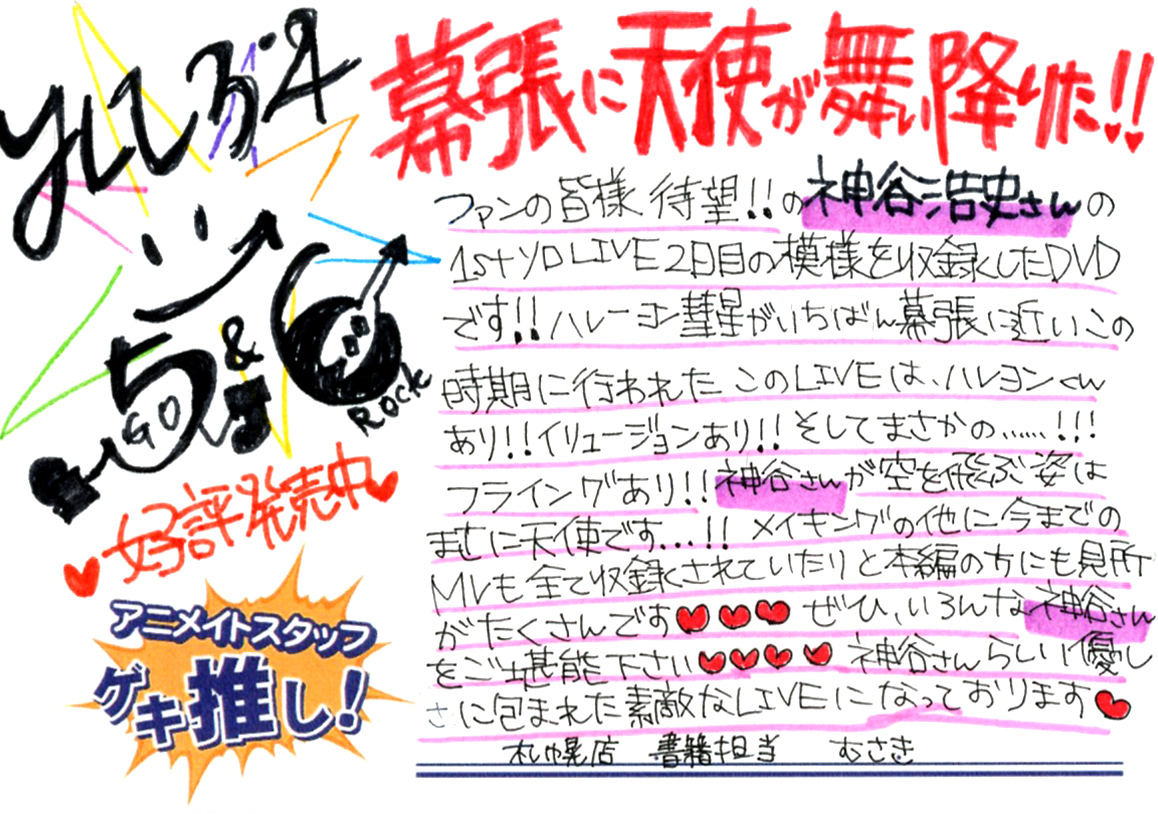 幕張に天使が舞い降りた!!
ファンの皆様 待望!!の神谷浩史さんの
1stソロLIVE2日目の模様を収録したDVD
です!!ハレーヨン彗星がいちばん幕張に近いこの
時期に行われた このLIVEは、ハレヨンくん
あり!!イリュージョンあり!! そしてまさかの……!!!
フライングあり!! 神谷さんが空を飛ぶ姿は
まさに天使です…!! メイキングの他に今までの
MVも全て収録されていたりと本編の方にも見所
がたくさんです♥♥♥ ぜひ、いろんな神谷さん
をご堪能下さい♥♥♥♥ 神谷さんらしい優し
さに包まれた素敵なLIVEになっております♥
札幌店 書籍担当 むさき
5 & 6
GO
Rock
♥好評発売中♥
アニメイトスタッフ
ゲキ推し!